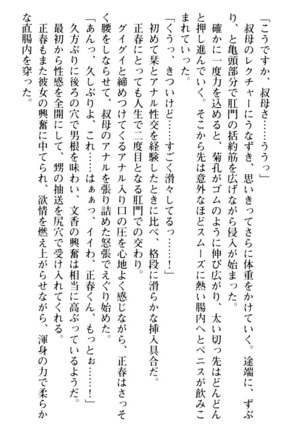 「こうですか、叔母さ……ううっ」
叔母のレクチャーにうなずき、思いきってさらに体重をかけていく。途端に、ずぶ
り、と亀頭部分で肛門の括約筋を広げながら侵入が始まった。
確かに一度力を込めると、菊孔がゴムのように伸び広がり、太い切っ先はどんどん
と押し進んでいく。そこから先は意外なほどスムーズに熱い腸内へとペニスが飲みこ
まれていった。
「くうっ、きついけど……すごく滑らしてる……っ！」
正春にとっても人生で二度目の肛門での交わり。
初めて栞とアナル性交を経験したときに比べ、格段に滑らかな挿入具合だ。
グイグイと締めつけてくるアナル入り口の圧を心地よく感じながら、正春はさっそ
く腰をしならせて、叔母のアナルを張り詰めた怒張でえぐり始めた。
「あんっ、久しぶりよ、これ……はぁっ、イイわ、正春くん、もっとぉ……！」
久方ぶりに後ろの穴で男根を味わい、文香の興奮は相当に高ぶっているようだ。
最初から性感を全開にして、甥の抽送を尻穴で受け入れてくれる。
正春もまた彼女の興奮に中てられ、欲情を燃え上がらせながら、渾身の力で柔らか
な直腸内を穿った。